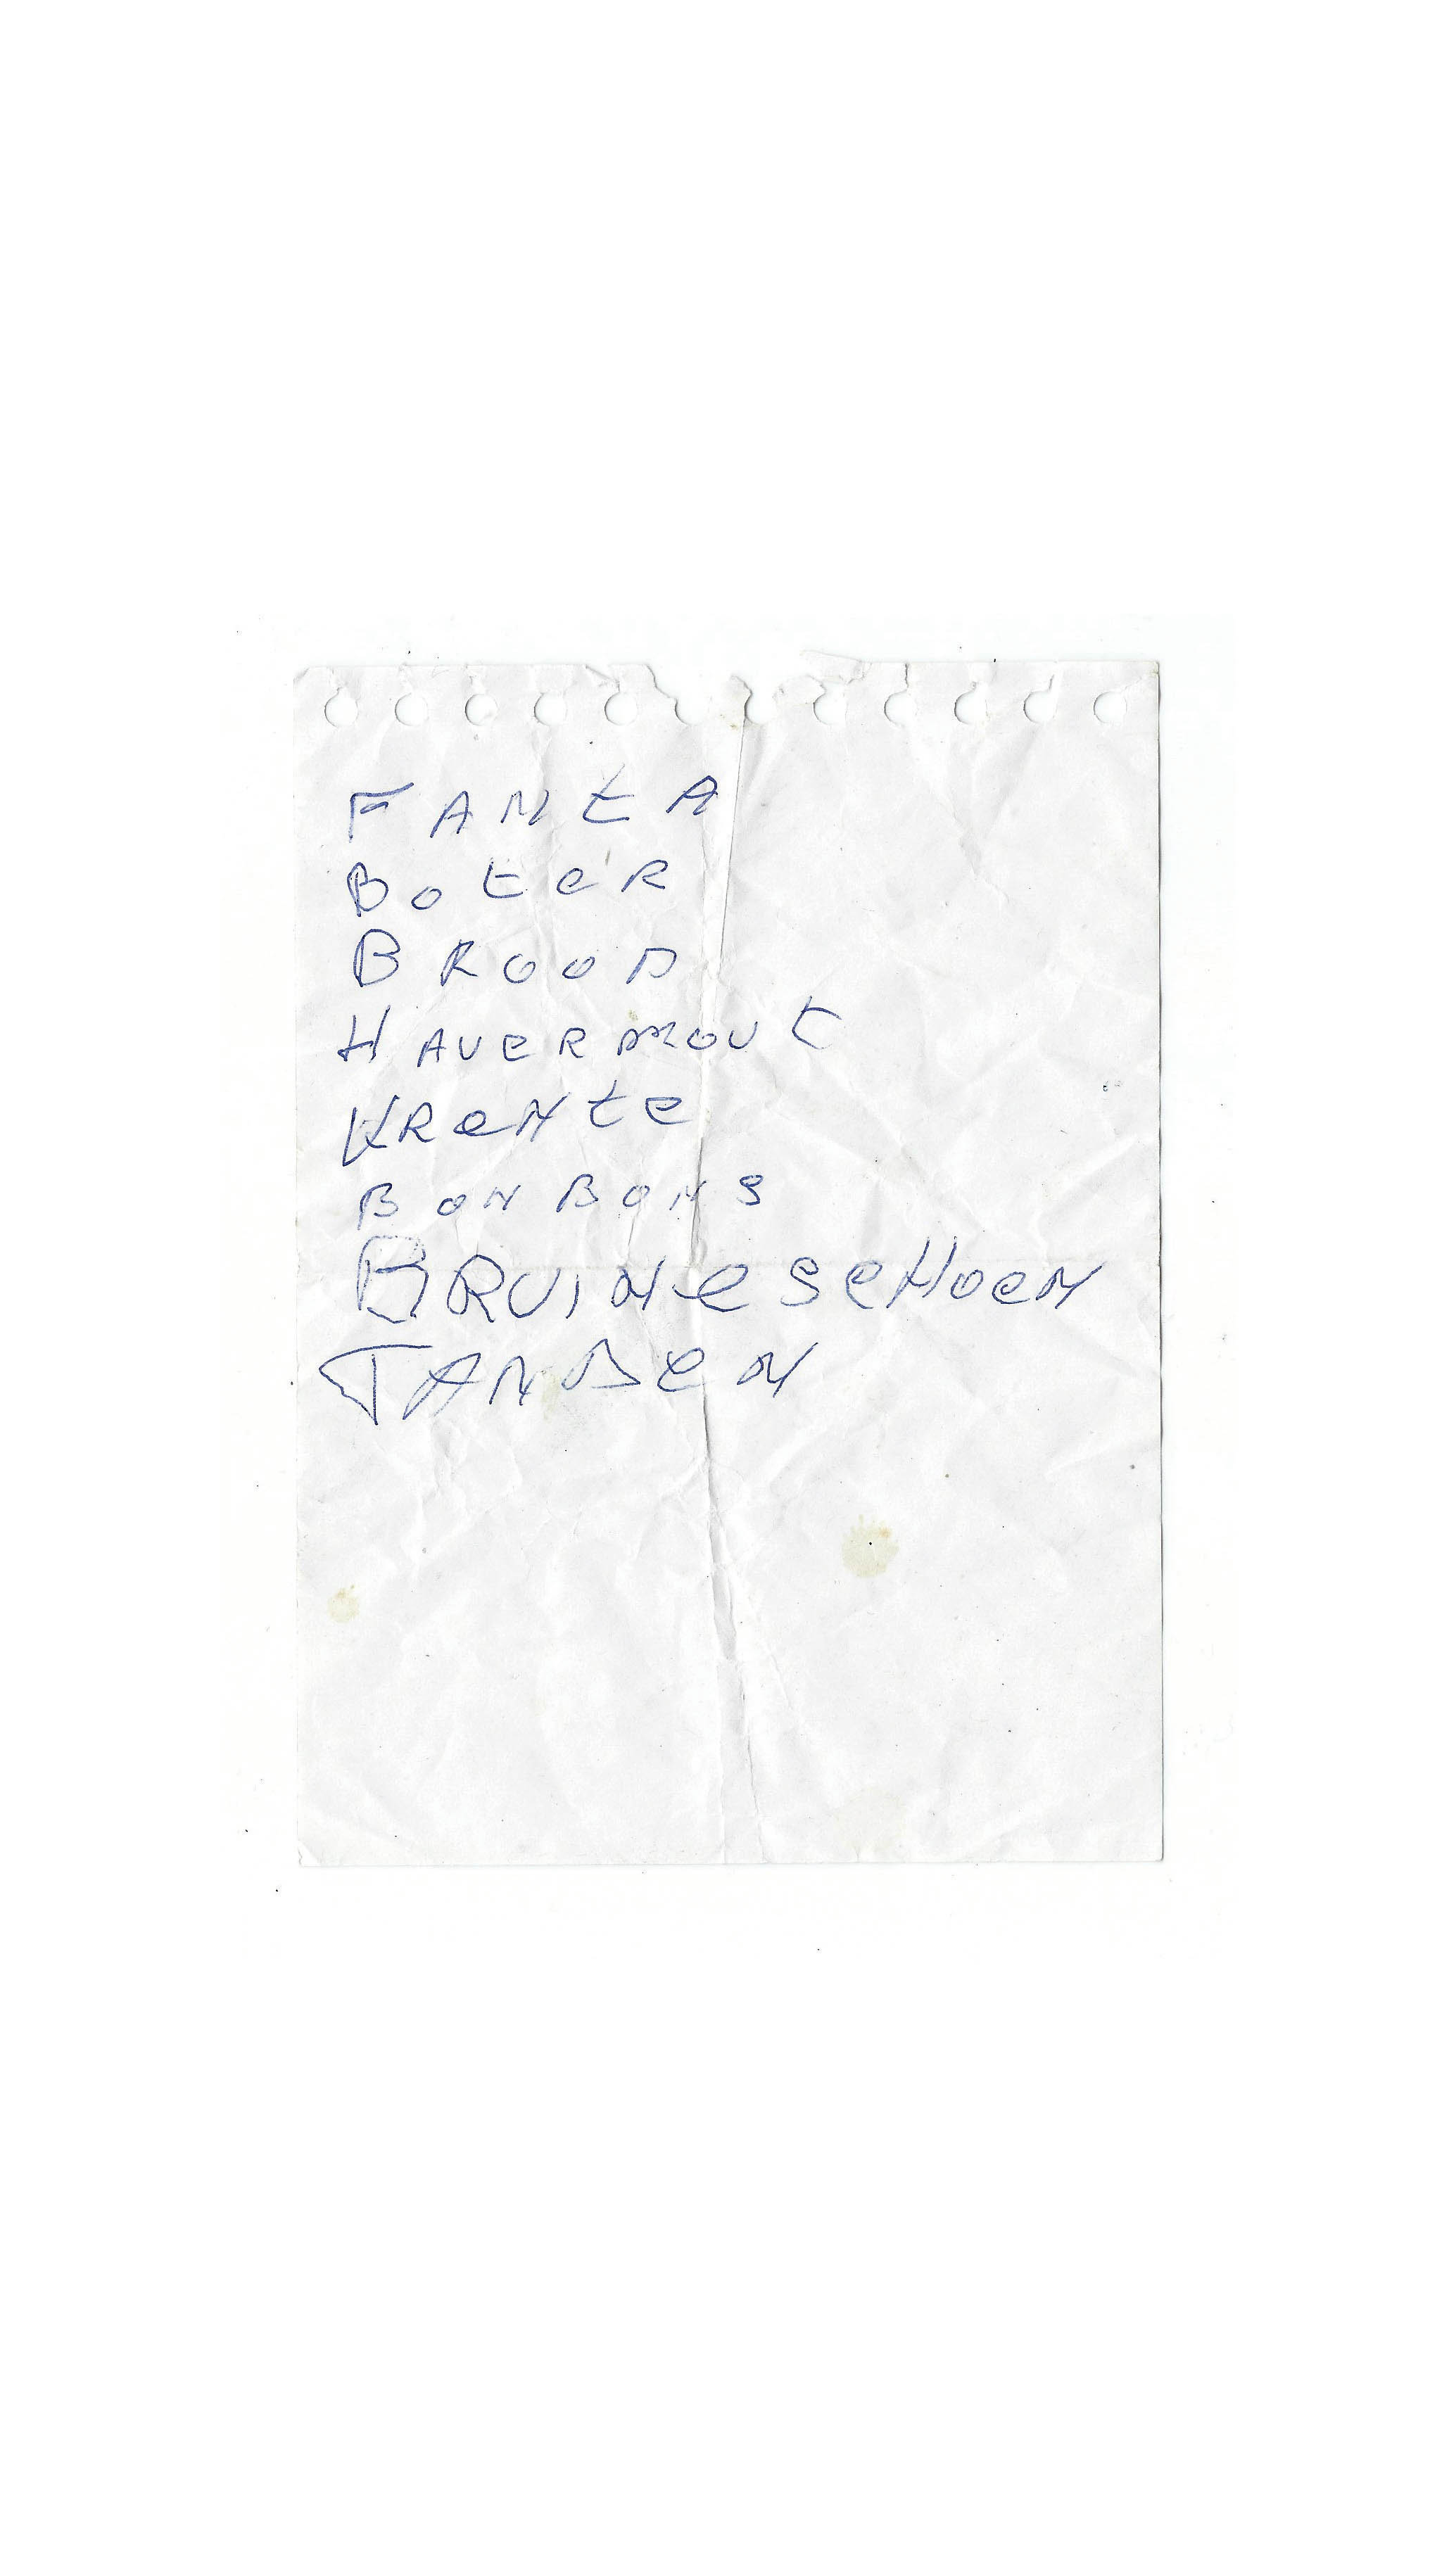 FANtA
BoteR
BRooD
HAveRmout
KRente
BonBons
BRUINe SeHoen
TANDeN